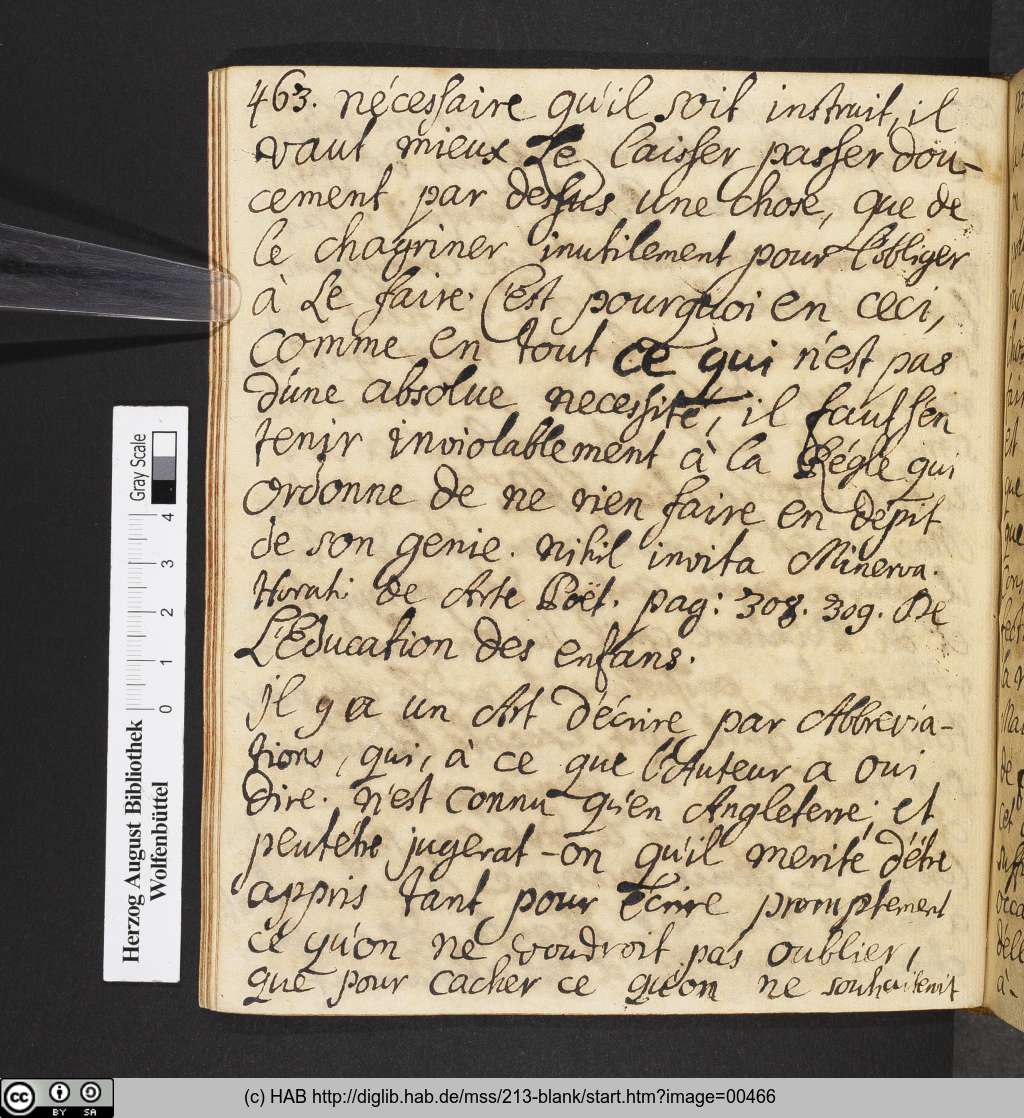 463. nécessaire qu'il soit instruit, il
vaut mieux Le laisser passer dou-
cement par dessus une chose, que de
le chagriner inutilement pour l'obliger
à Le faire. C'est pourquoi en ceci,
comme en tout ce qui n'est pas
d'une absolue necessité, il faut s'en
tenir inviolablement à la Régle qui
ordonne de ne rien faire en dépit
de son genie. nihil invita Minerva.
Horati de Arte Poët. pag: 308. 309. De
L'Education des enfans.
il y a un Art d'écrire par Abbrevia-
tions, qui, à ce que l'Auteur a oui
dire. n'est connu qu'en Angleterre; et
peutetre jugerat-on qu'il merite d'étre
appris tant pour écrire promptement
ce qu'on ne voudroit pas oublier,
que pour cacher ce qu'on ne souhaiteroit
Herzog August Bibliothek
Wolfenbüttel
0 1 2 3 4
Gray Scale
(c) HAB http://diglib.hab.de/mss/213-blank/start.htm?image=00466
cc BY SA